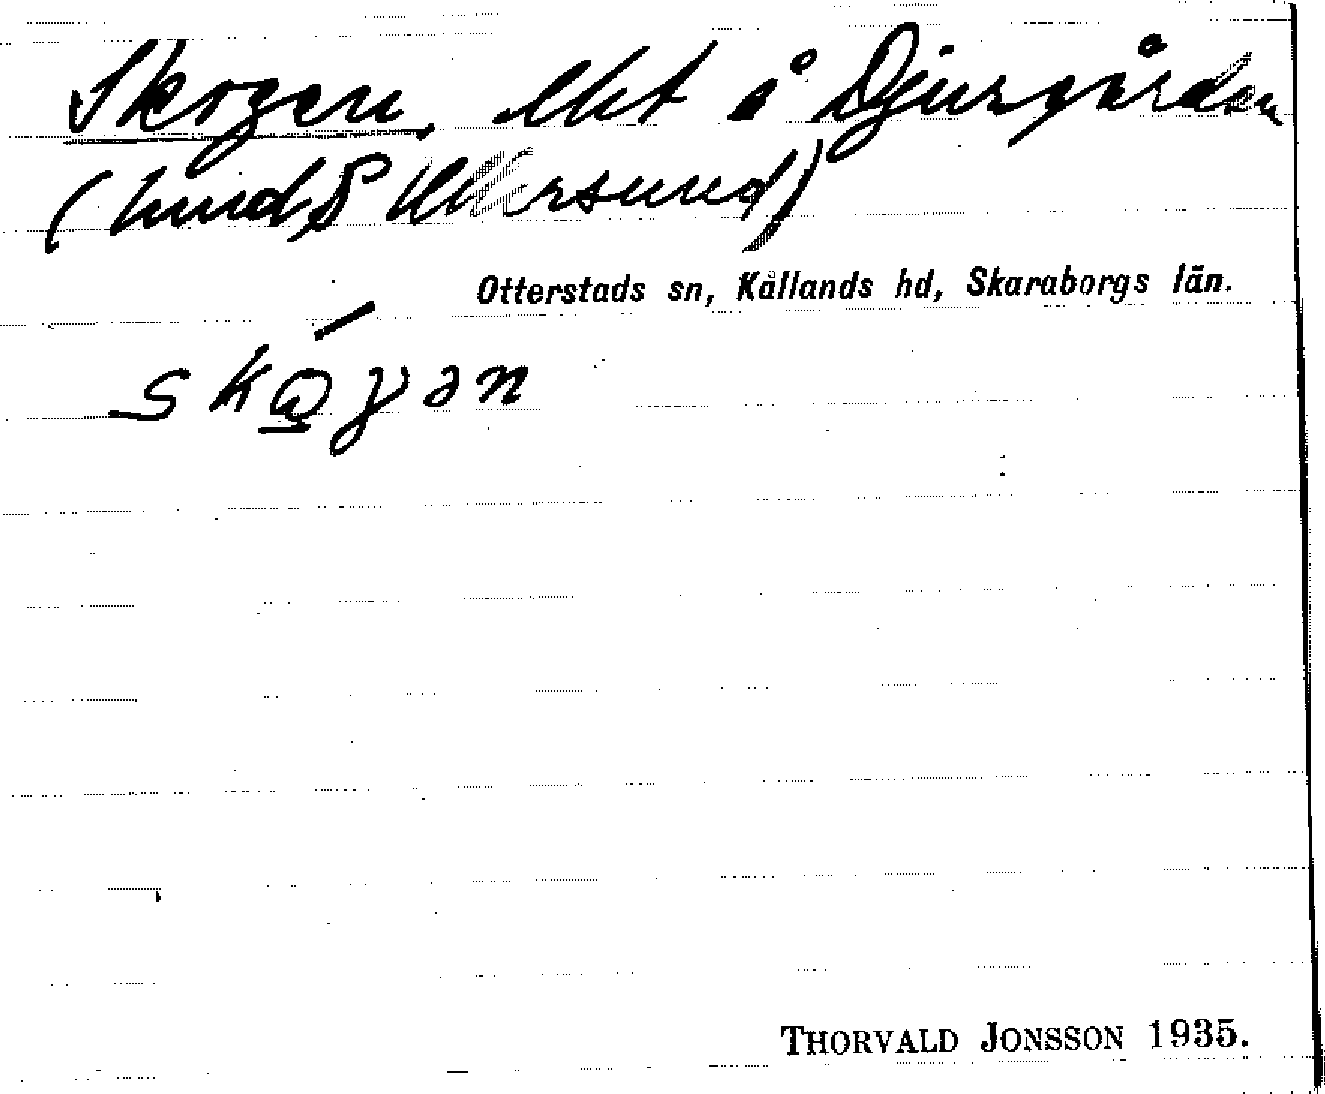 Skogen, lht å Djurgården
(und. Ullersund)
Otterstads sn, Kållands hd, Skaraborgs län.
skọ́γən
THORVALD JONSSON 1935.